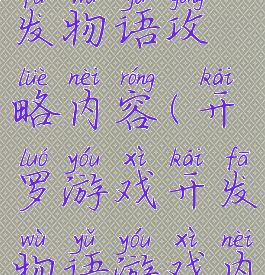 fā wù yǔ gōng
发物语攻
lüè nèi róng kāi
略内容(开
luó yóu xì kāi fā
罗游戏开发
wù yǔ yóu xì nèi
物语游戏内